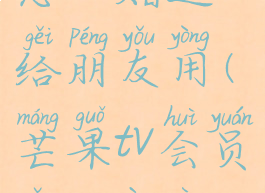 gěi péng yǒu yòng
给朋友用(
máng guǒ huì yuán
芒果tv会员